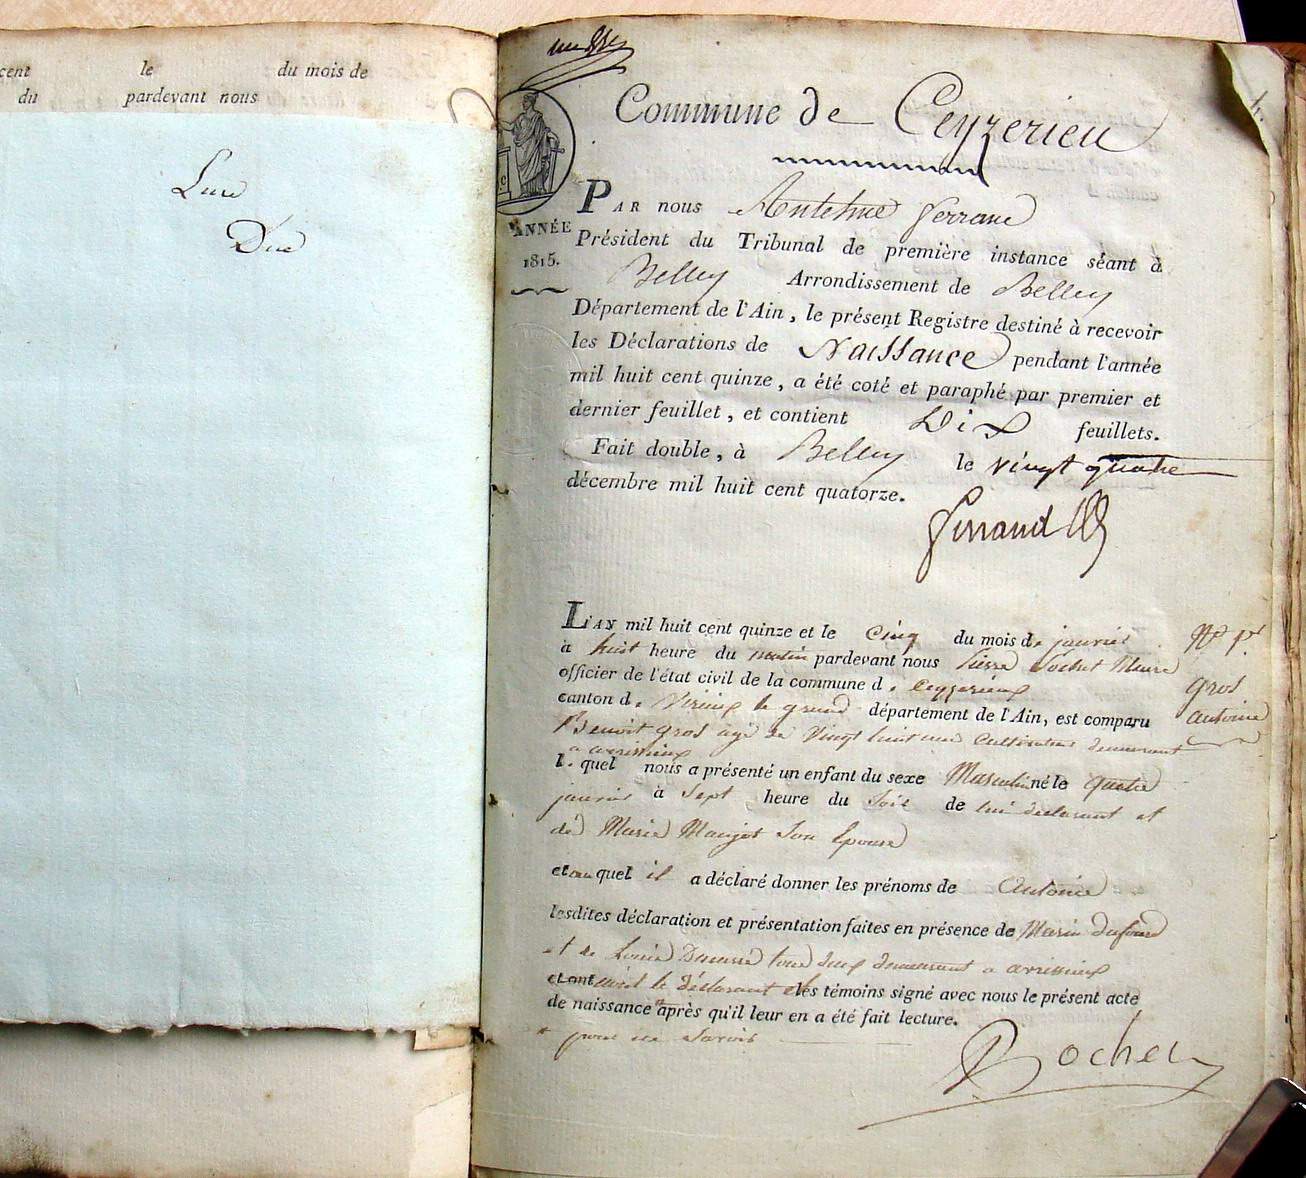 cent le du mois de
du pardevant nous
Commune de Ceyzerieu
PAR nous Anthelme Ferrand
ANNÉE
1815.
Président du Tribunal de première instance séant à
Belley Arrondissement de Belley
Département de l'Ain, le présent Registre destiné à recevoir
les Déclarations de Naissance pendant l'année
mil huit cent quinze, a été coté et paraphé par premier et
dernier feuillet, et contient Dix feuillets.
Fait double, à Belley le vingt quatre
décembre mil huit cent quatorze.
Ferrand
L'AN mil huit cent quinze et le cinq du mois de janvier
à huit heure du matin pardevant nous Pierre Bochet Maire
officier de l'état civil de la commune de Ceyzerieux
canton de Virieux le grand département de l'Ain, est comparu
Benoit Gros agé de Vingt huit ans Cultivateur demeurant
a avrissieux
N° 1er
Gros
antoine
lequel nous a présenté un enfant du sexe Masculin né le quatre
janvier à Sept heure du Soir de lui déclarant et
de Marie Maujot Son Epouse
et auquel il a déclaré donner les prénoms de Antoine
lesdites déclaration et présentation faites en présence de Marin dufour
et de Louis tous deux demeurant a avrissieux
et ont le déclarant et les témoins signé avec nous le présent acte
de naissance * après qu'il leur en a été fait lecture.
* pour ne Savoir
Bochet